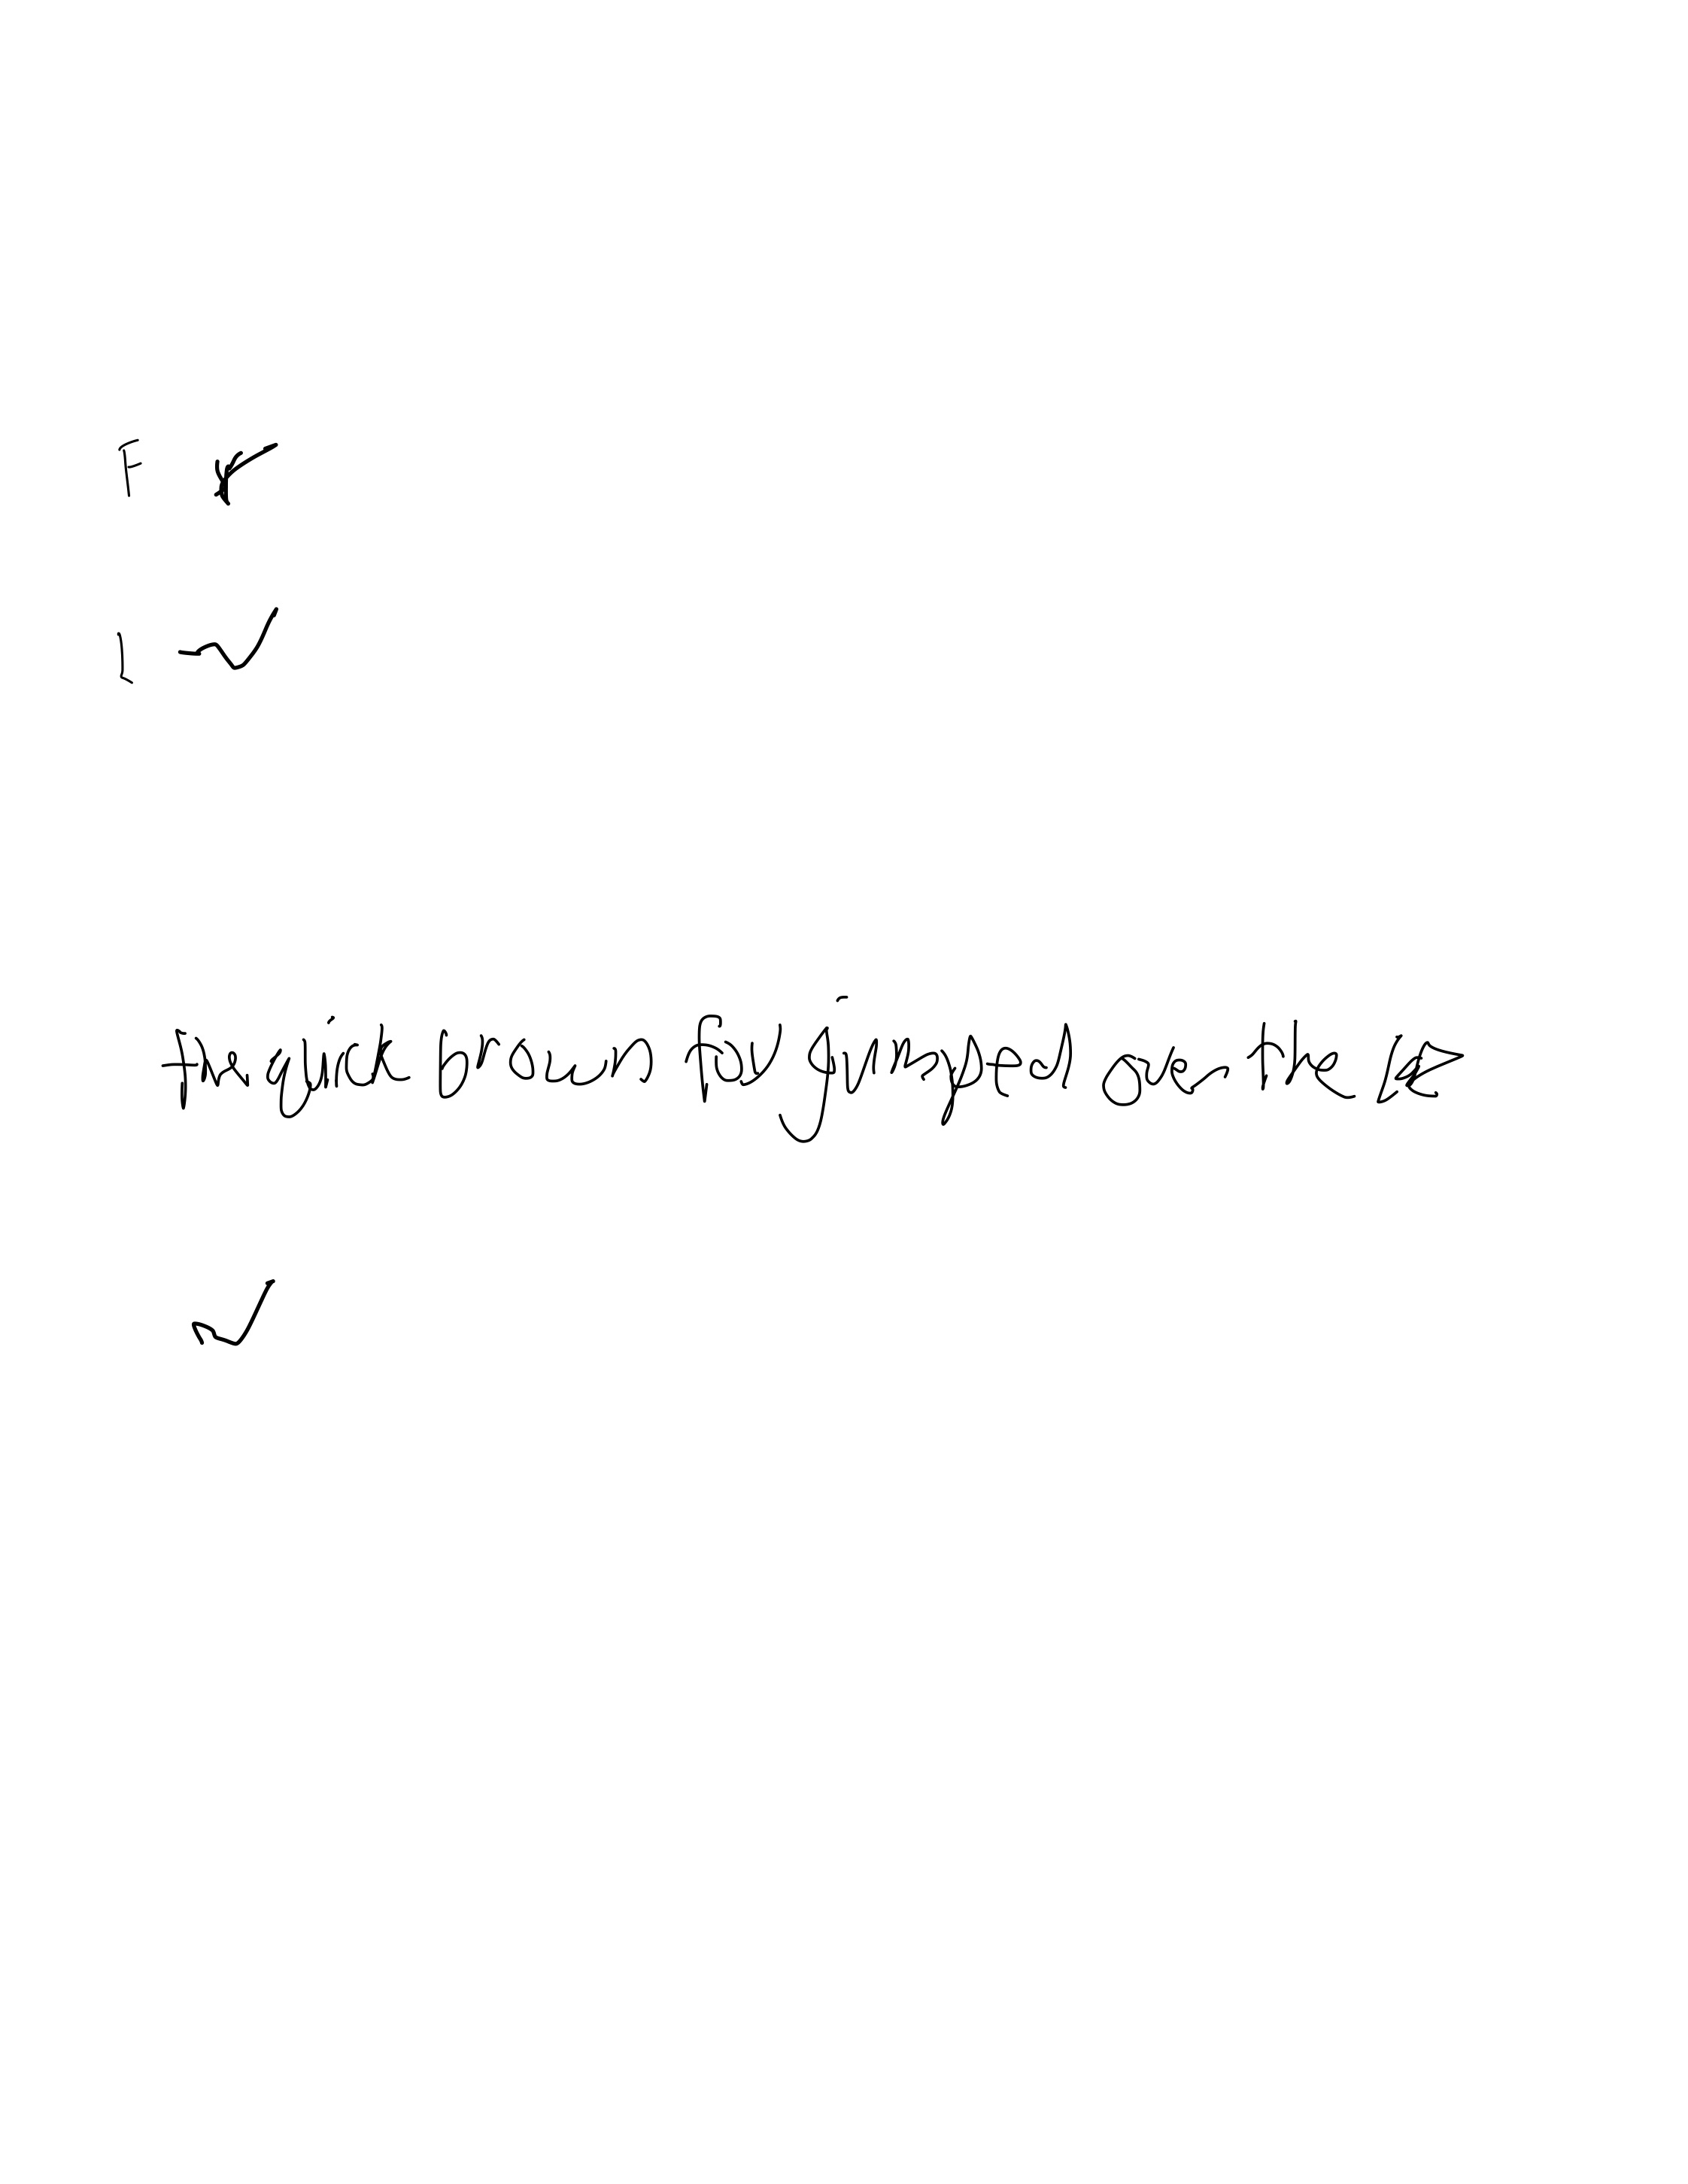 F
the quick brown fox jumped over the